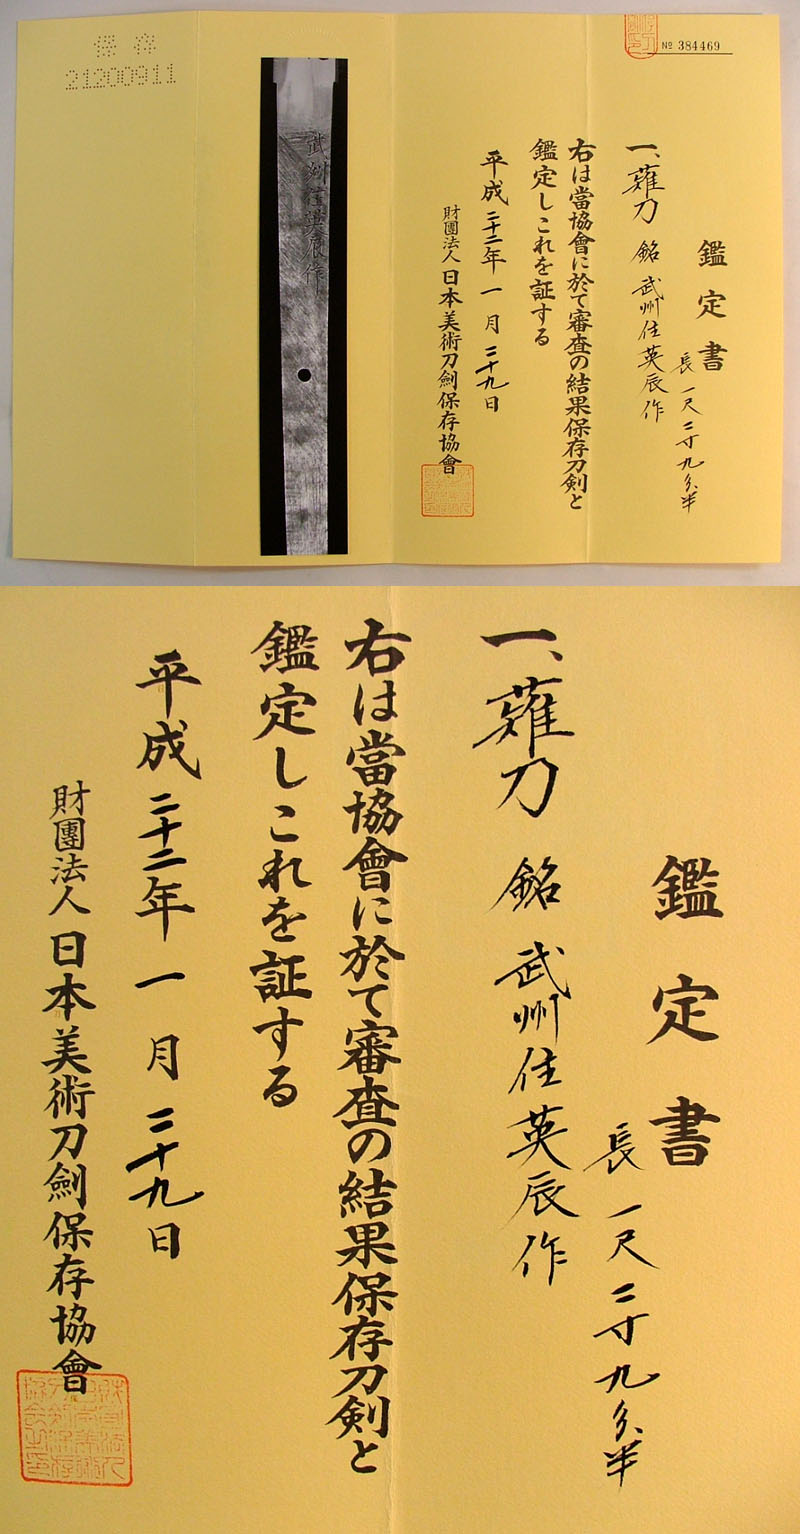 № 384469
鑑定書
長一尺二寸九分半
一、薙刀 銘 武州住英辰作
右は當協會に於て審査の結果保存刀剣と
鑑定しこれを証する
平成二十二年一月二十九日
財團法人日本美術刀劍保存協會
武州住英辰作
保存
21200911
鑑定書
長一尺二寸九分半
一、薙刀 銘 武州住英辰作
右は當協會に於て審査の結果保存刀剣と
鑑定しこれを証する
平成二十二年一月二十九日
財團法人日本美術刀劍保存協會